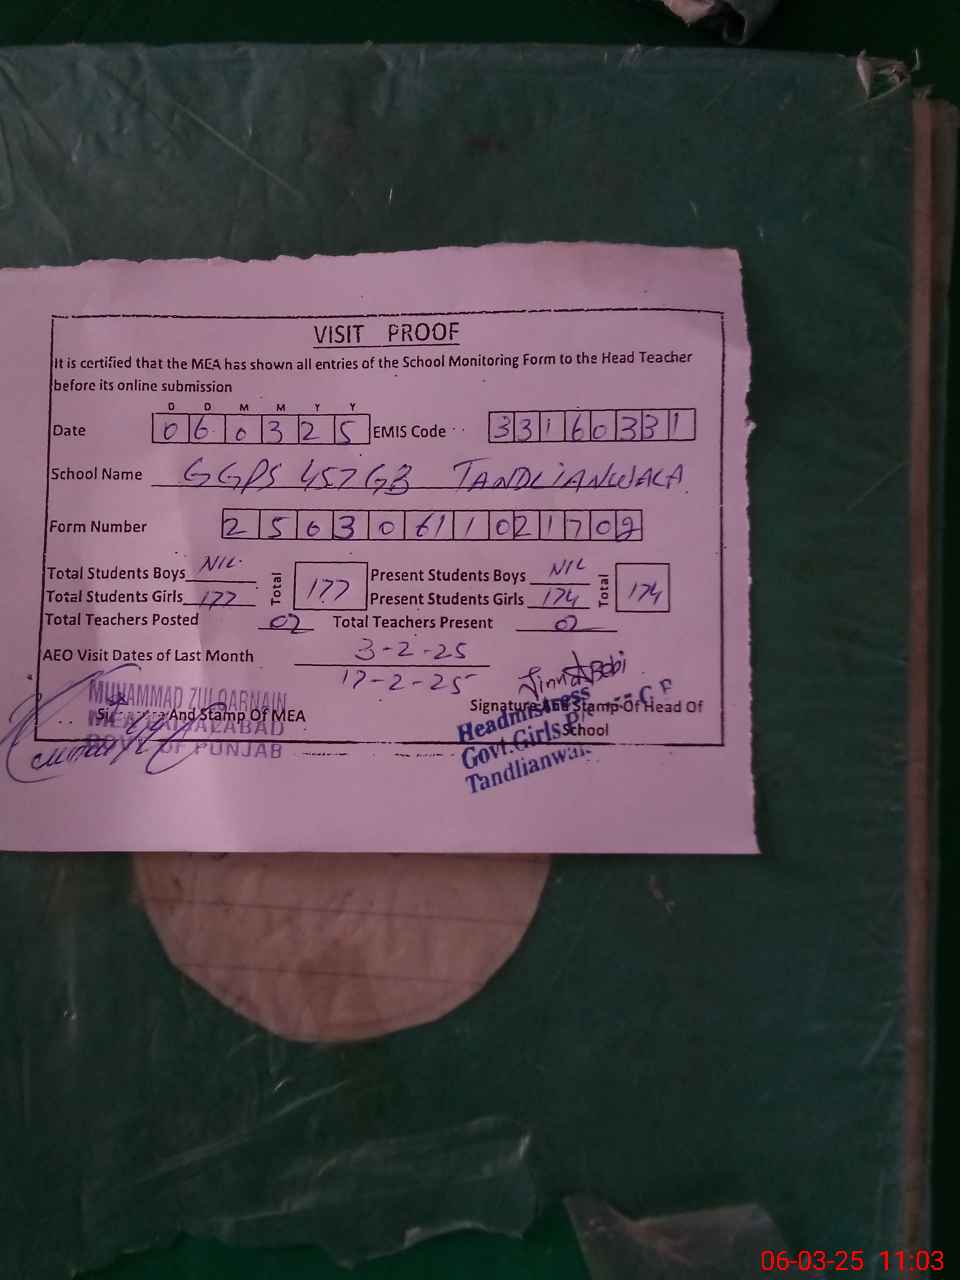 VISIT PROOF
It is certified that the MEA has shown all entries of the School Monitoring Form to the Head Teacher
before its online submission
D D M M Y Y
Date 0 6 0 3 2 5 EMIS Code 3 3 1 6 0 3 3 1
School Name GGPS 457 GB TANDLIANWALA
Form Number 2 5 0 3 0 6 1 1 0 2 1 7 0 2
Total Students Boys NIL Total 177 Present Students Boys NIL Total 174
Total Students Girls 177 Present Students Girls 174
Total Teachers Posted 02 Total Teachers Present 02
AEO Visit Dates of Last Month 3-2-25
17-2-25
MUHAMMAD ZULQARNAIN
MEA FAISALABAD
GOVT OF PUNJAB
And Stamp Of MEA
Signature And Stamp Of Head Of
School
Headmistress
Govt.Girls
06-03-25 11:03